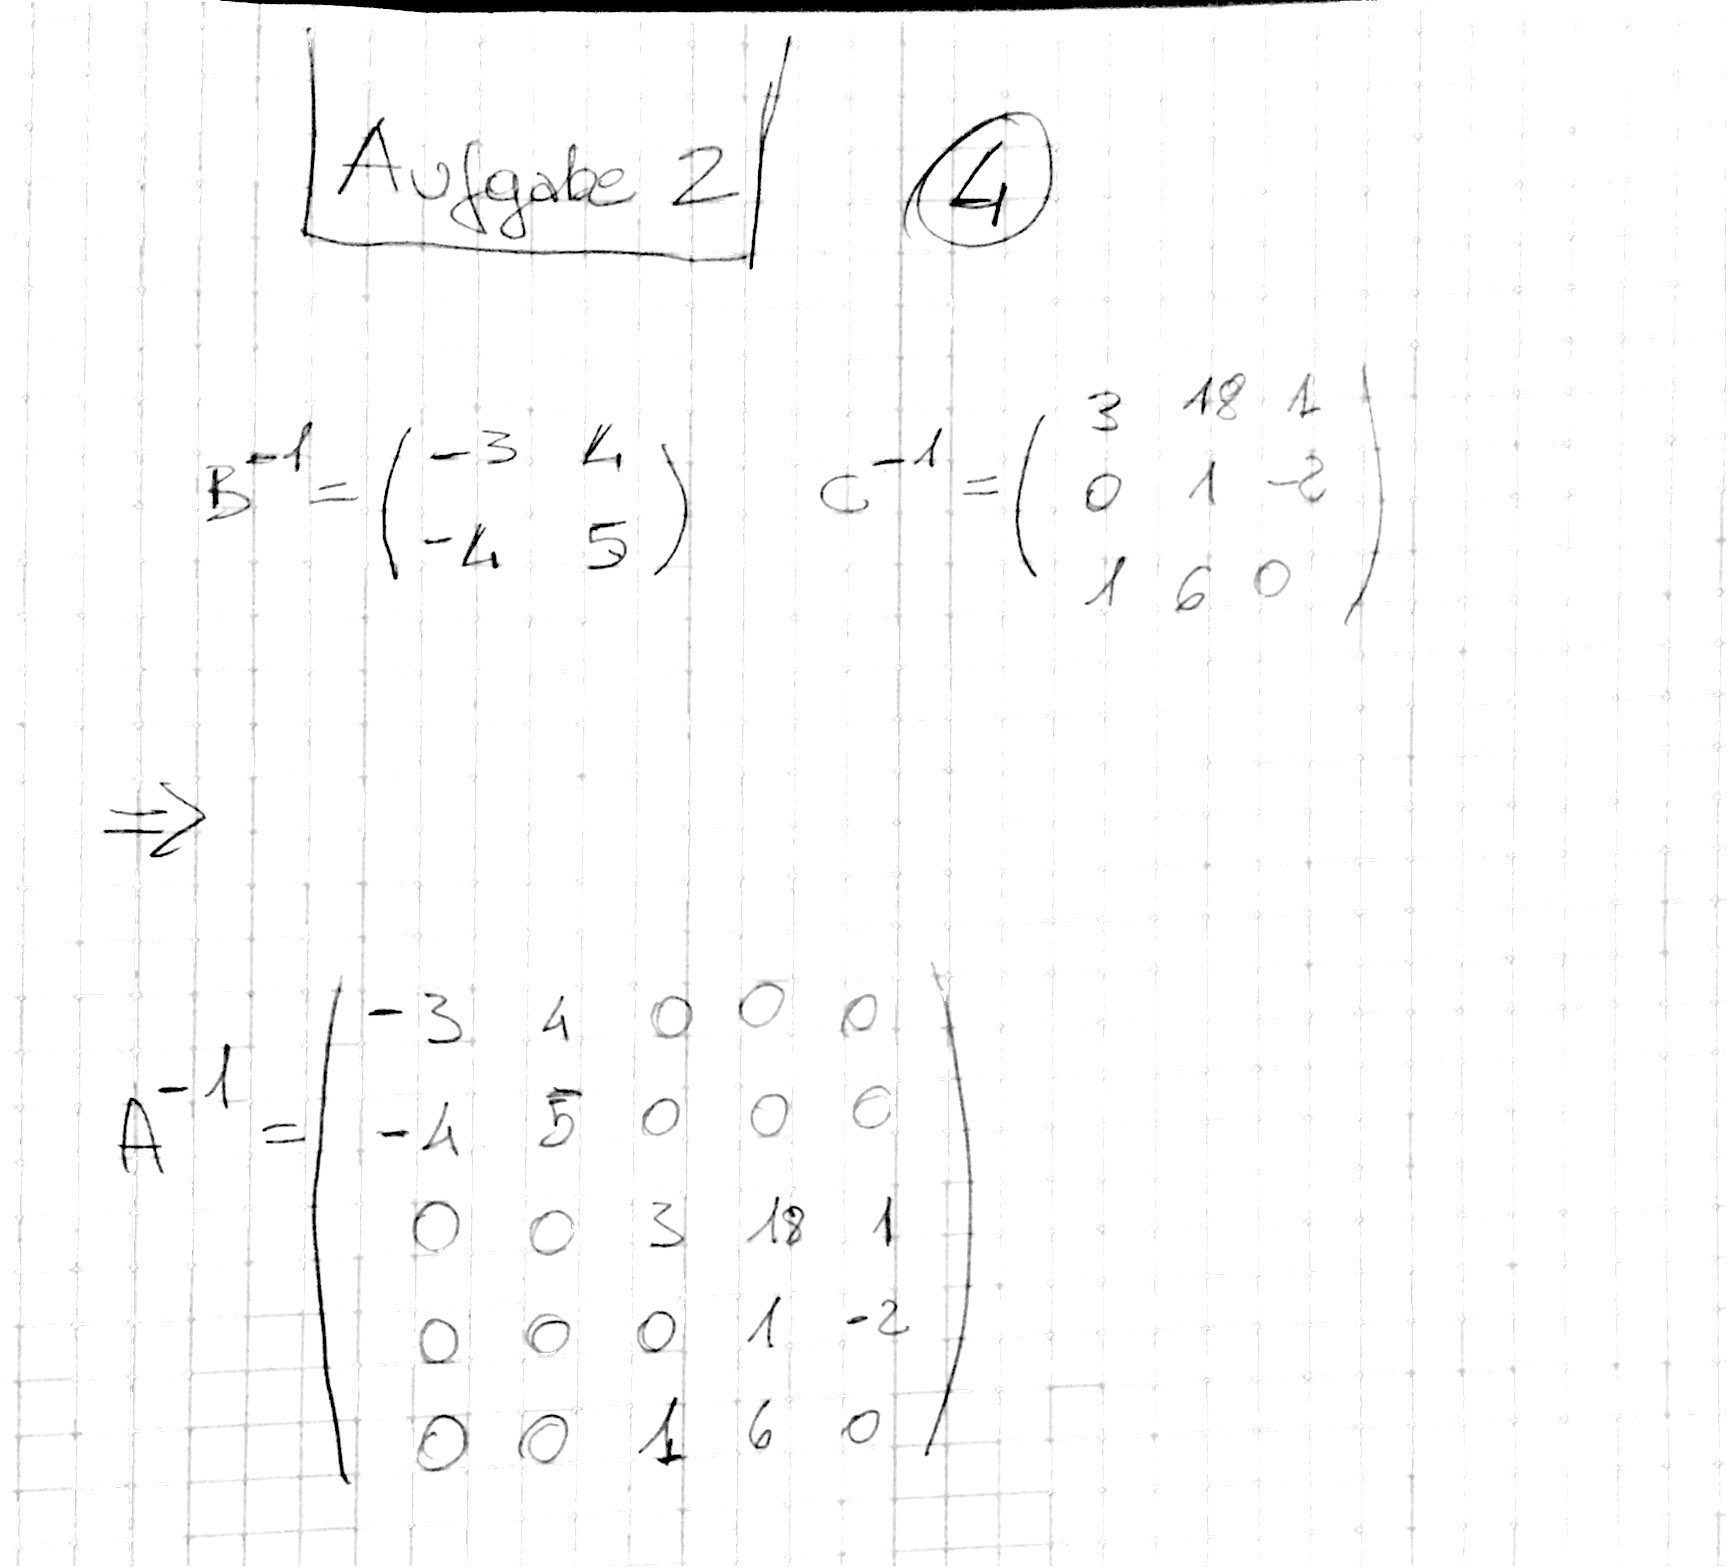 Aufgabe 2 4
B^-1 = ( -3 4 ; -4 5 ) C^-1 = ( 3 18 1 ; 0 1 -2 ; 1 6 0 )
⇒
A^-1 = ( -3 4 0 0 0
-4 5 0 0 0
0 0 3 18 1
0 0 0 1 -2
0 0 1 6 0 )